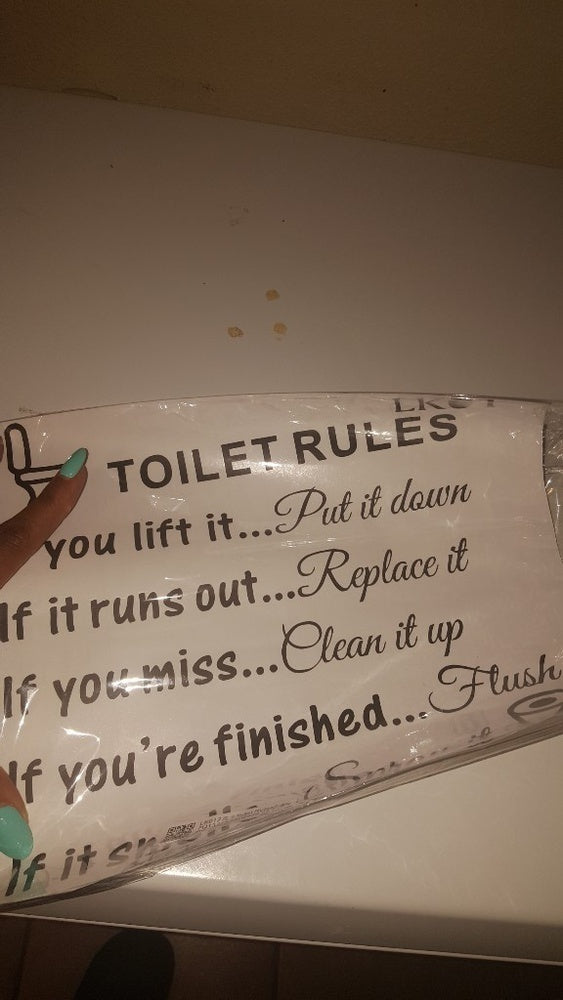 TOILET RULES
you lift it...Put it down
If it runs out...Replace it
If you miss...Clean it up
If you're finished...Flush
If it